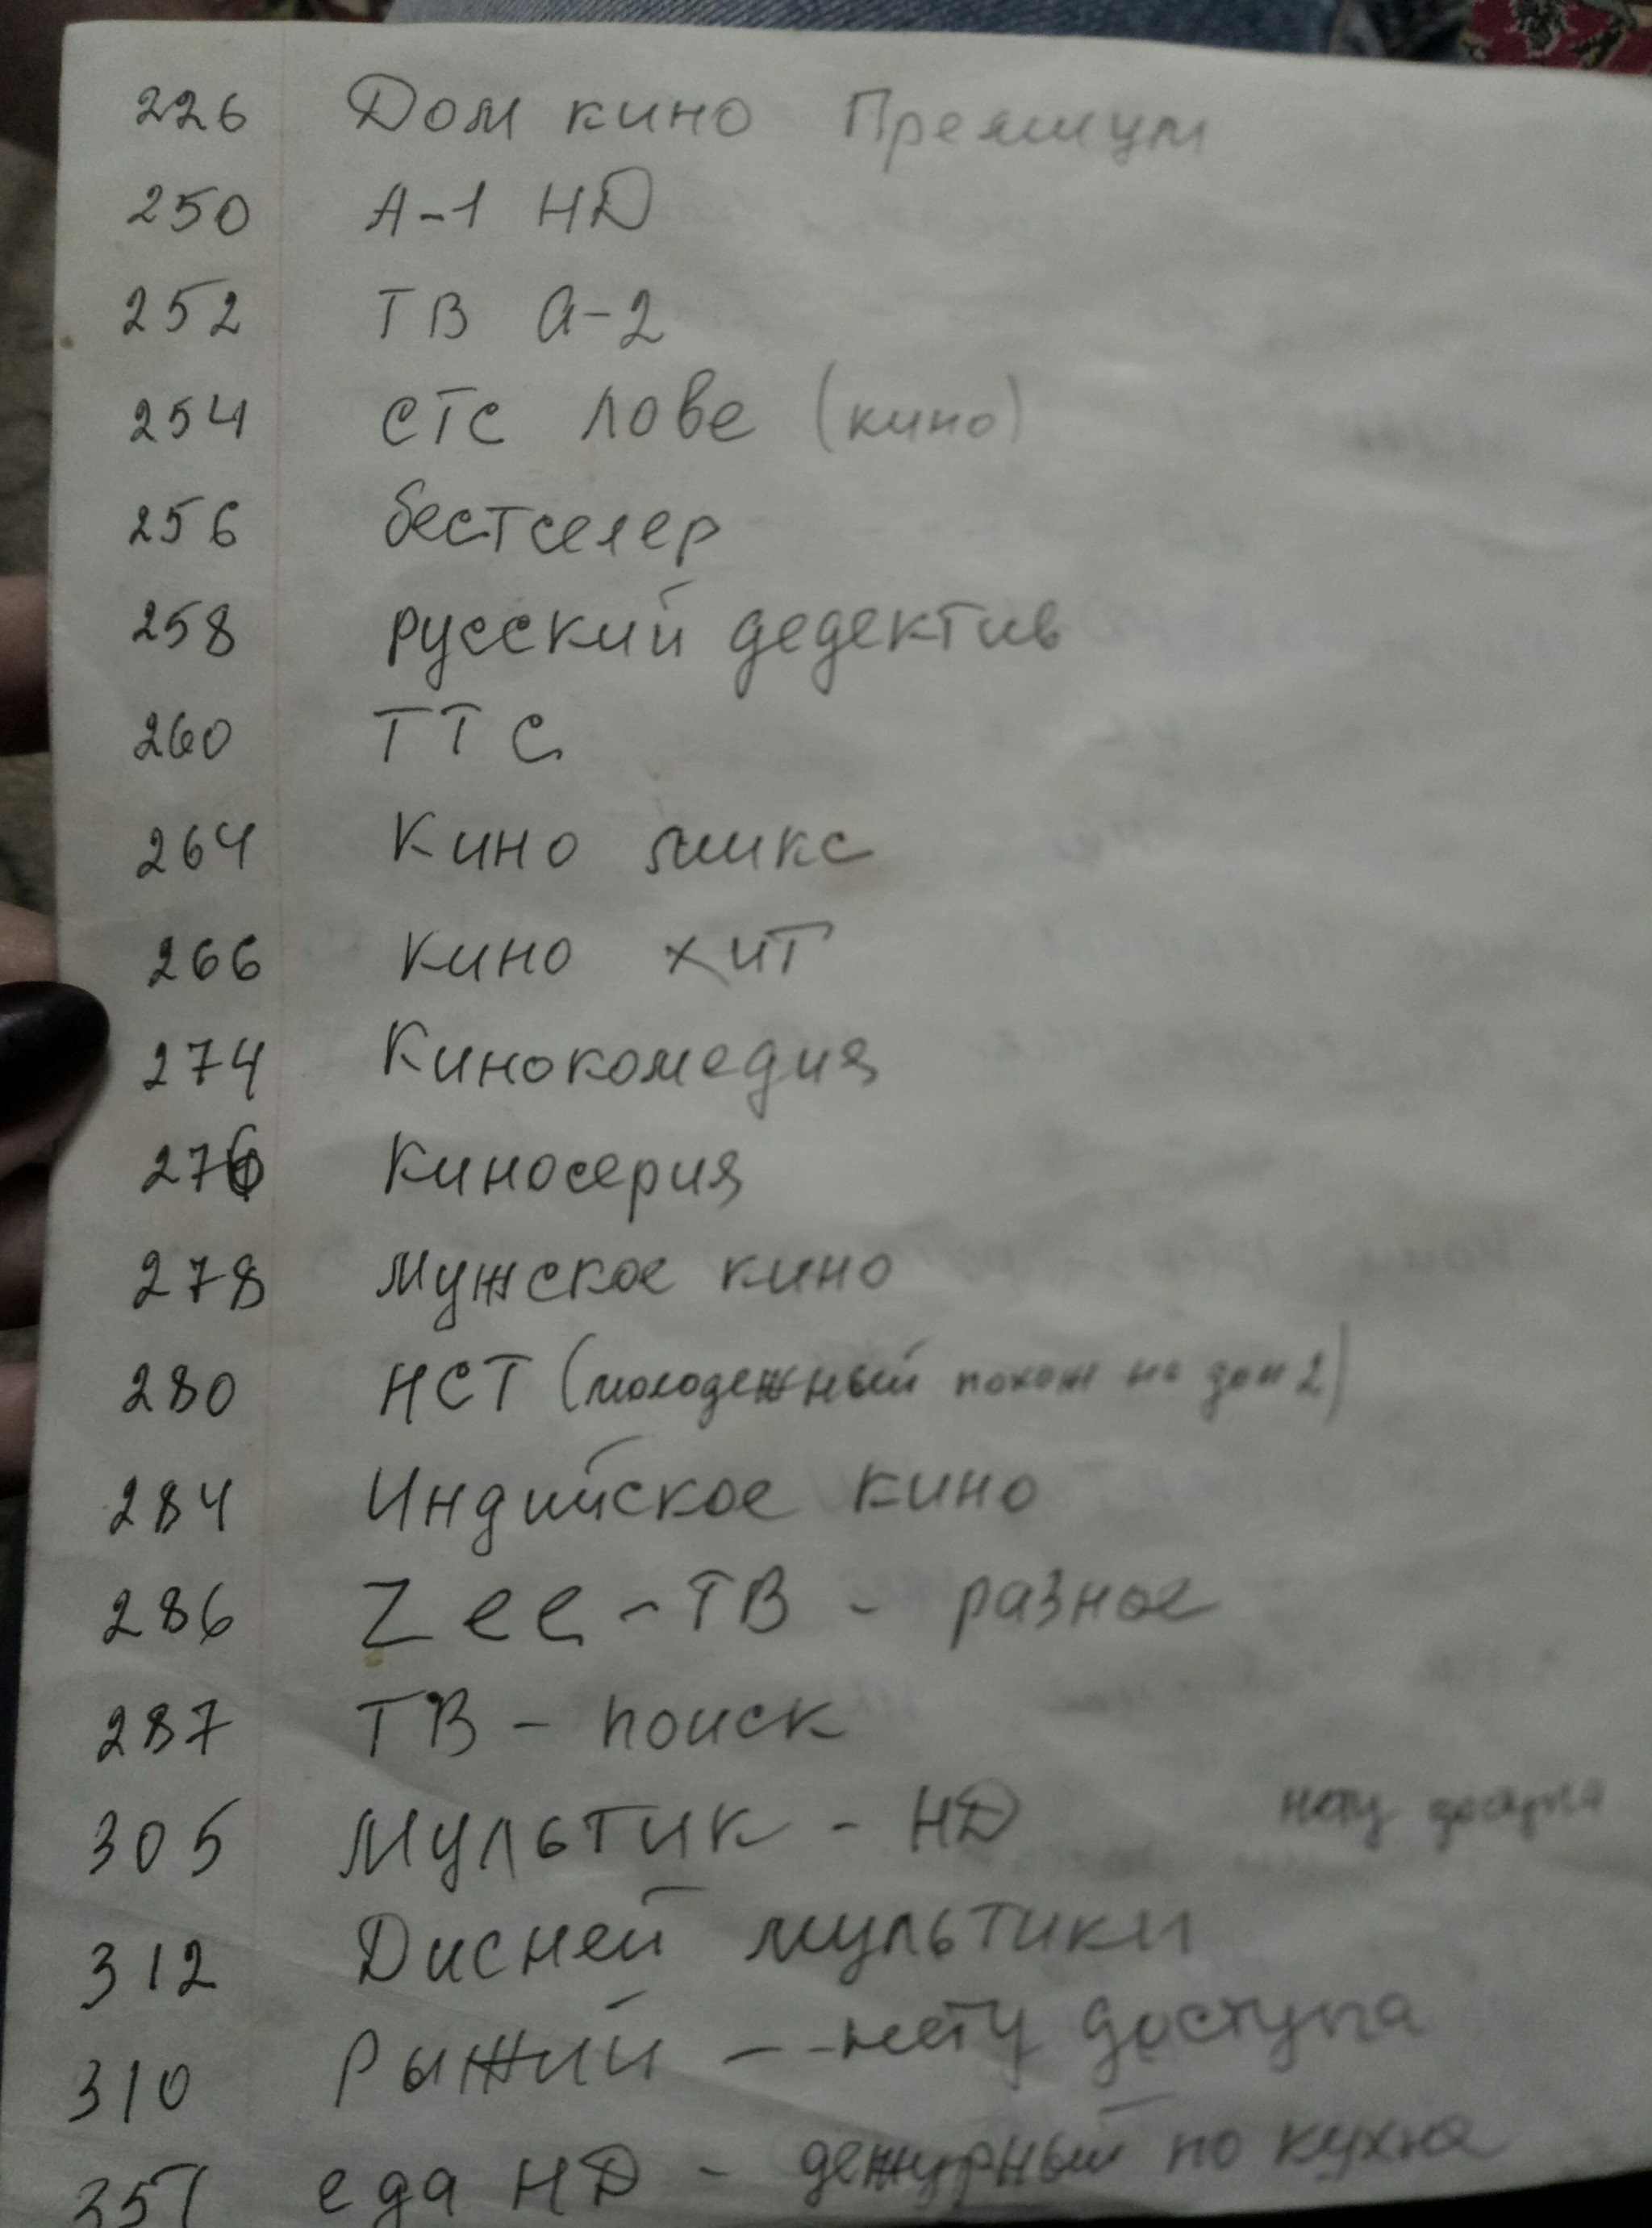 226 Дом кино Премиум
250 А-1 НД
252 ТВ а-2
254 СТС лове (кино)
256 бестселер
258 русский дедектив
260 ТТС
264 Кино микс
266 Кино хит
274 Кинокомедия
276 Киносерия
278 Мужское кино
280 НСТ (молодежный похож на дом 2)
284 Индийское кино
286 Zee-ТВ - разное
287 ТВ - поиск
305 Мультик - НД нету доступа
312 Дисней мультики
310 Рыжий - - нету доступа
351 еда НД - дежурный по кухне